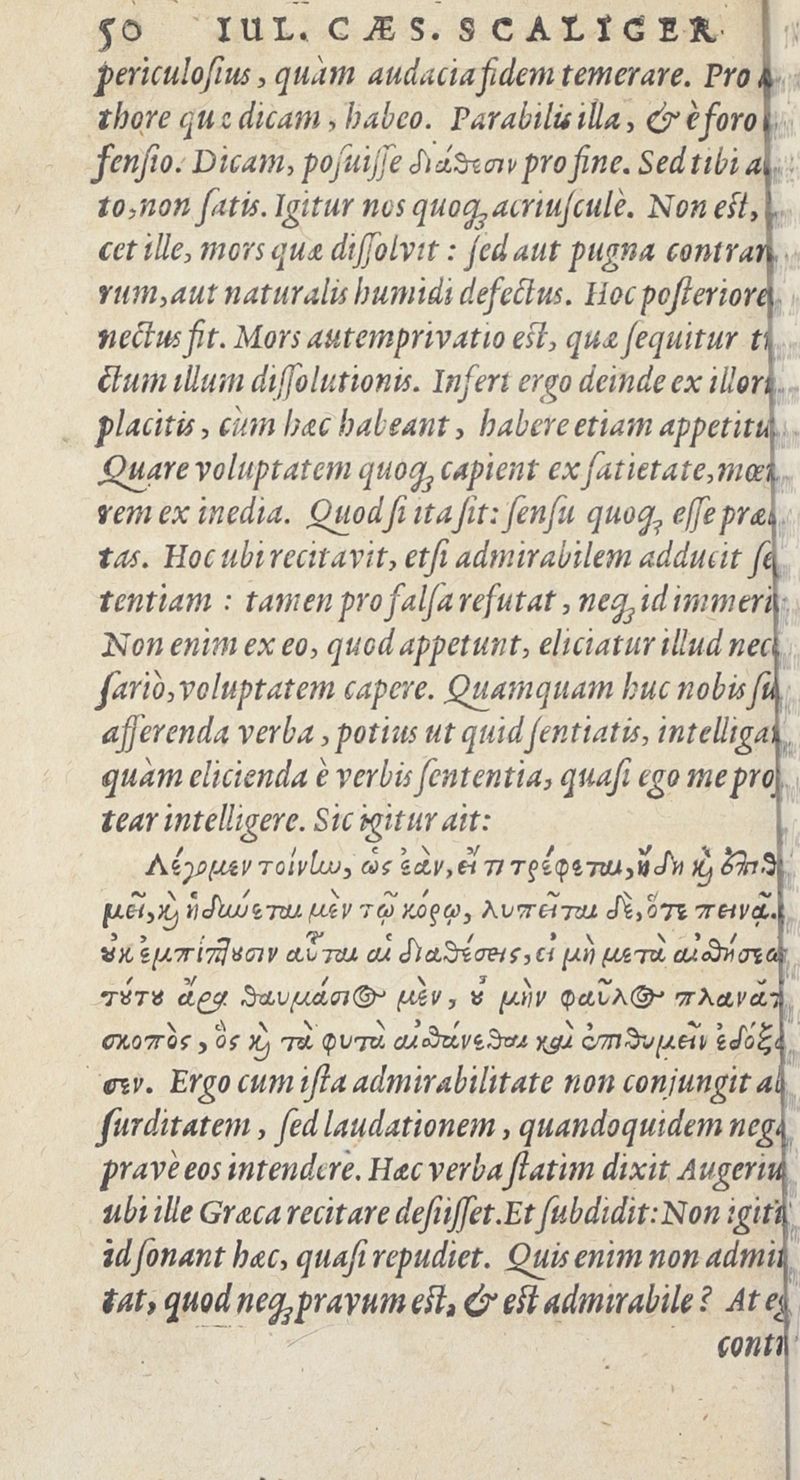 50 IUL. CÆS. SCALIGER
periculosius, quàm audacia fidem temerare. Pro
thore quæ dicam, habeo. Parabilis illa, & è foro
sensio. Dicam, posuisse διάθεσιν pro fine. Sed tibi
to, non satis. Igitur nos quoq; acriusculè. Non est,
cet ille, mors quæ dissolvit: sed aut pugna contrar
rum, aut naturalis humidi defectus. Hoc posteriore
nectus fit. Mors autem privatio est, quæ sequitur
ctum illum dissolutionis. Infert ergo deinde ex illor
placitis, cùm hæc habeant, habere etiam appetitu
Quare voluptatem quoq; capient ex satietate, mœ
rem ex inedia. Quod si ita sit: sensu quoq; esse præ
tas. Hoc ubi recitavit, etsi admirabilem adducit se
tentiam : tamen pro falsa refutat, neq; id immeri
Non enim ex eo, quod appetunt, eliciatur illud nec
sariò, voluptatem capere. Quamquam huc nobis su
afferenda verba, potius ut quid sentiatis, intelliga
quàm elicienda è verbis sententia, quasi ego me pro
tear intelligere. Sic igitur ait:
Λέγομεν τοίνυν, ὡς ἐὰν, εἴ τι τρέφεται, ἤδη καὶ ἐπιθ
μεῖ, καὶ ἥδυνεται μὲν τῷ κόρῳ, λυπεῖται δὲ, ὅτε πεινᾷ.
οὐκ ἐμπίπτουσιν αὗται αἱ διαθέσεις, εἰ μὴ μετὰ αἰσθήσεω
τούτου ἄρα θαυμάσιος μὲν, οὐ μὴν φαῦλος πλανᾶτ
σκοπὸς, ὃς καὶ τὰ φυτὰ αἰσθάνεσθαι καὶ ἐπιθυμεῖν ἐδόξα
σεν. Ergo cum ista admirabilitate non conjungit a
surditatem, sed laudationem, quandoquidem neg
pravè eos intendere. Hæc verba statim dixit Augeriu
ubi ille Græca recitare desiisset. Et subdidit: Non igit
id sonant hæc, quasi repudiet. Quis enim non admi
tat, quod neq; pravum est, & est admirabile? At eg
cont